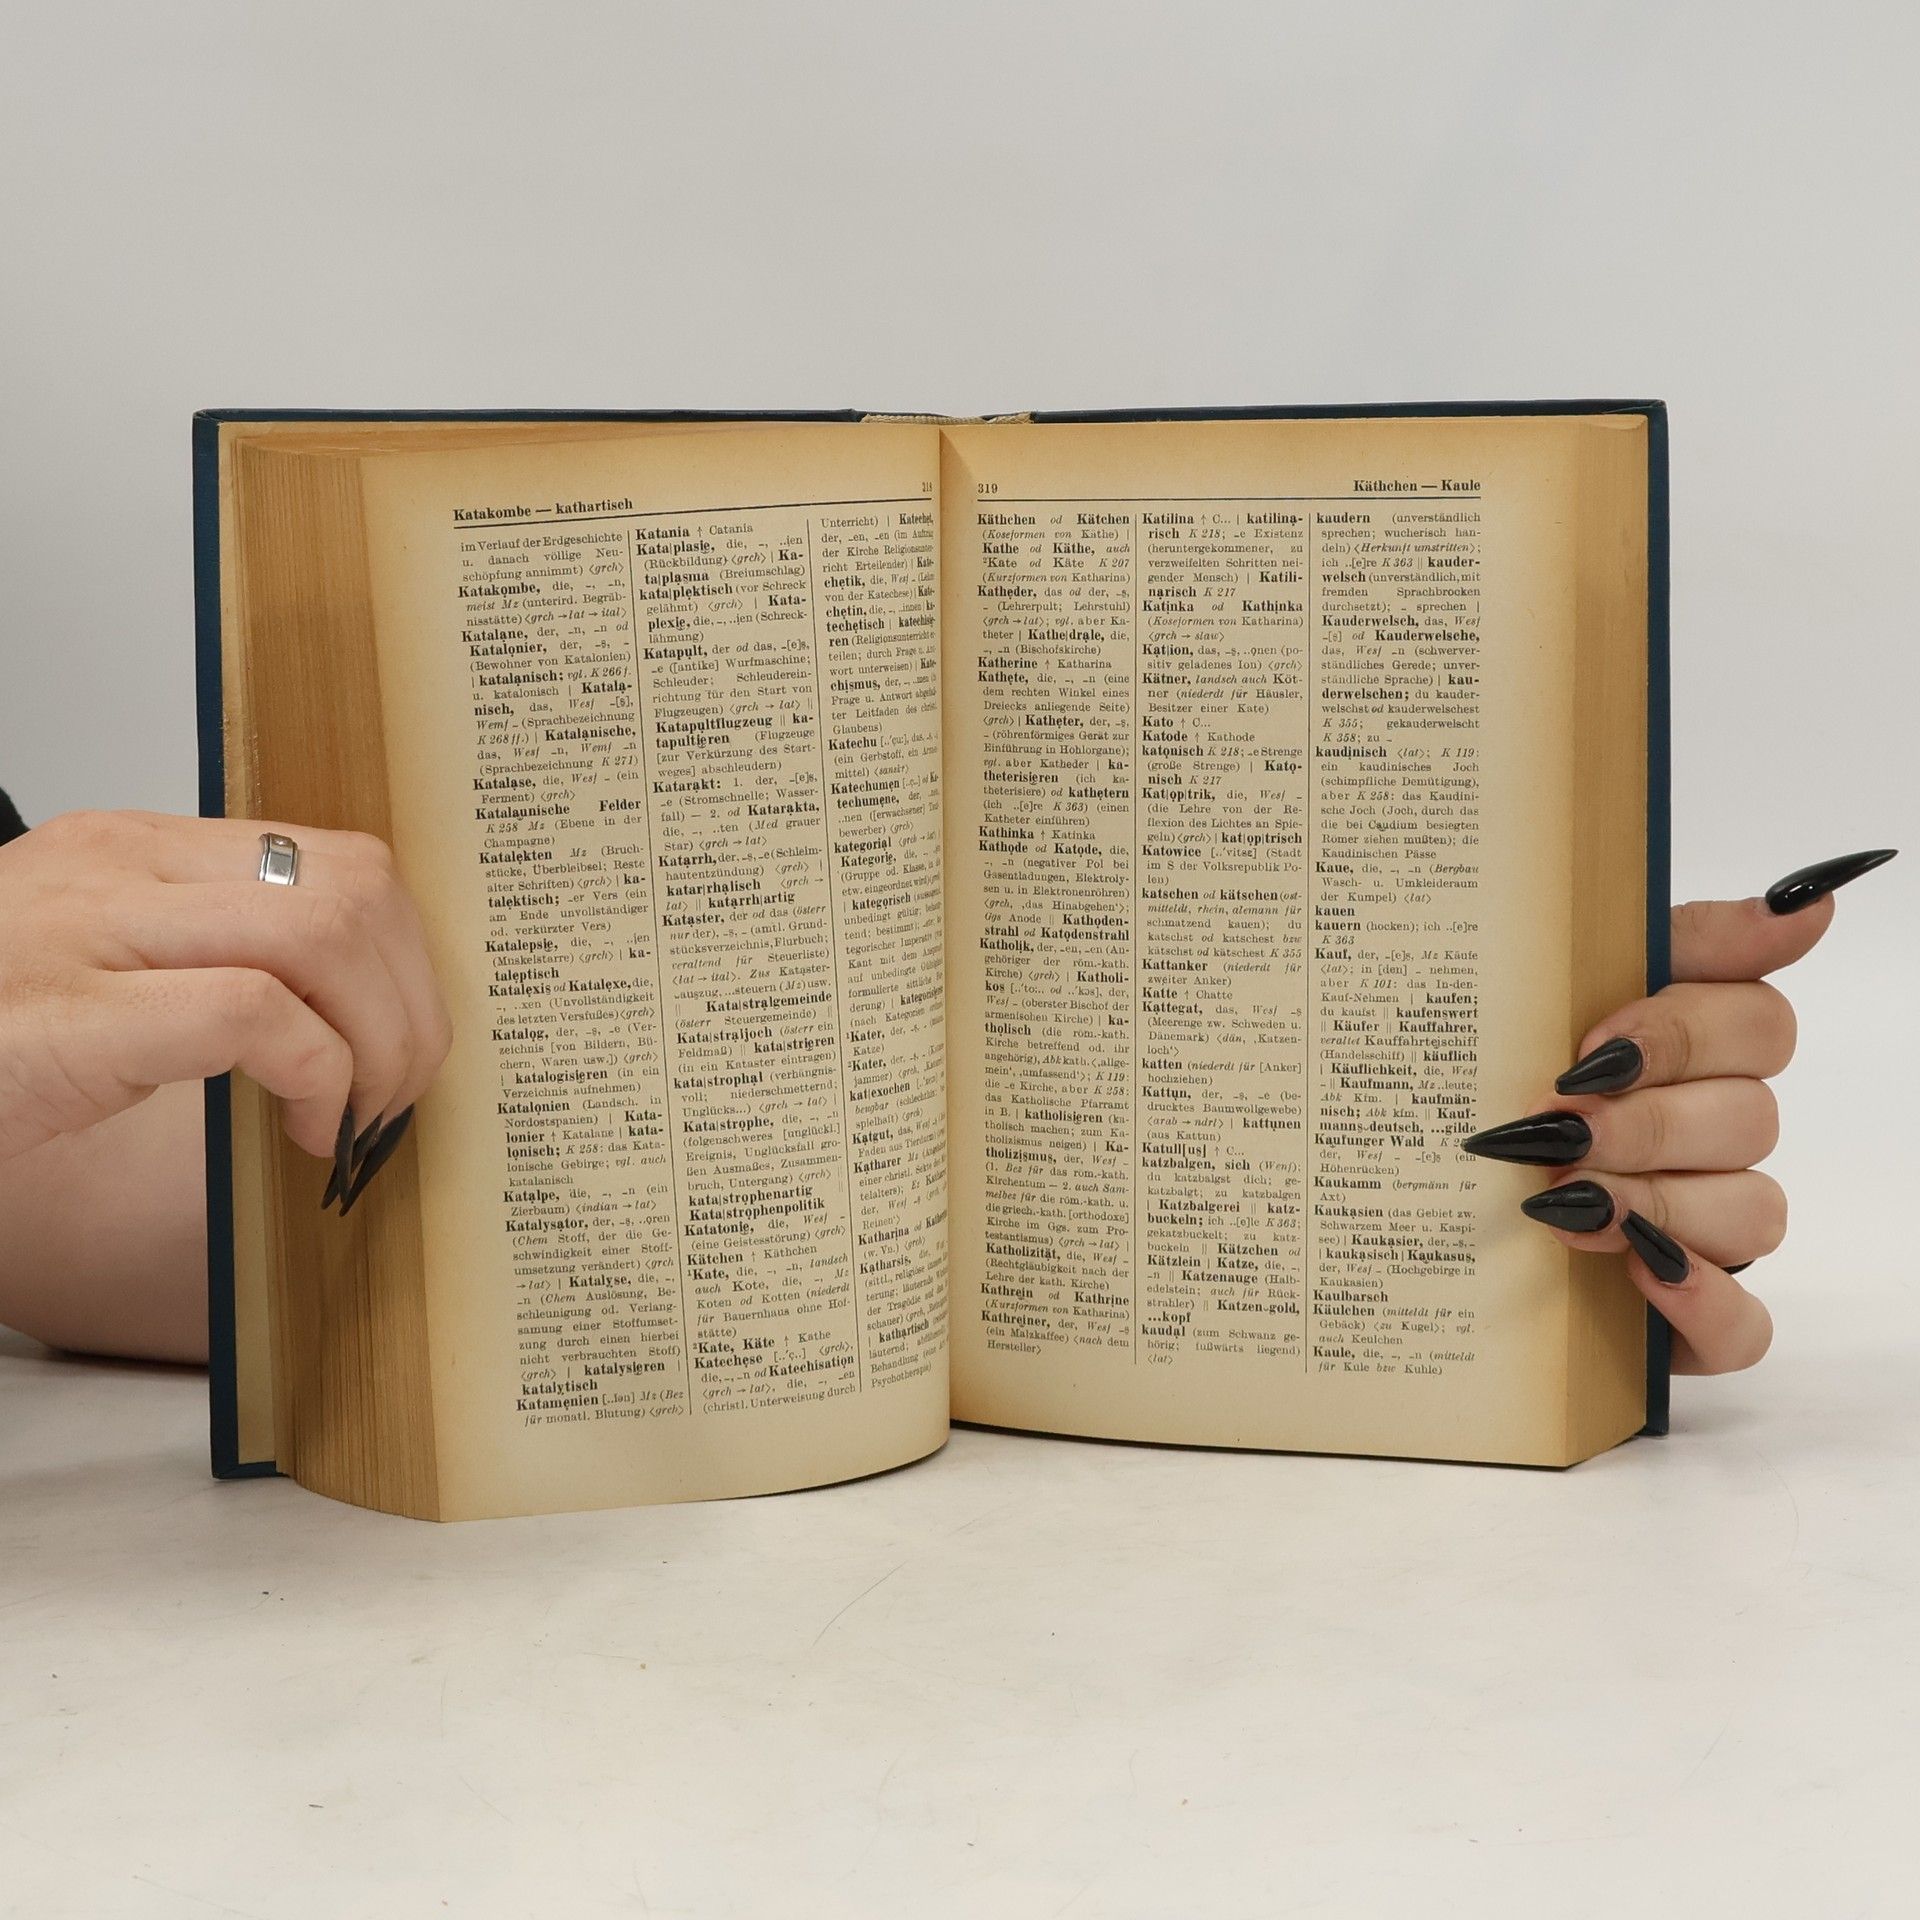 Katakombe — kathartisch
im Verlauf der Erdgeschichte
u. danach völlige Neu-
schöpfung annimmt) ⟨grch⟩
Katakombe, die, –, –n,
meist Mz (unterird. Begräb-
nisstätte) ⟨grch → lat → ital⟩
Katalane, der, –n, –n od
Katalonier, der, –s, –
(Bewohner von Katalonien)
| katalanisch; vgl. K 266 f.
u. katalonisch | Katala-
nisch, das, Wesf –[s],
Wemf – (Sprachbezeichnung
K 268 ff.) | Katalanische,
das, Wesf –n, Wemf –n
(Sprachbezeichnung K 271)
Katalase, die, Wesf – (ein
Ferment) ⟨grch⟩
Katalaunische Felder
K 258 Mz (Ebene in der
Champagne)
Katalekten Mz (Bruch-
stücke, Überbleibsel; Reste
alter Schriften) ⟨grch⟩ | ka-
talektisch; –er Vers (ein
am Ende unvollständiger
od. verkürzter Vers)
Katalepsie, die, –, ..ien
(Muskelstarre) ⟨grch⟩ | ka-
taleptisch
Katalexis od Katalexe, die,
–, ..xen (Unvollständigkeit
des letzten Versfußes) ⟨grch⟩
Katalog, der, –s, –e (Ver-
zeichnis [von Bildern, Bü-
chern, Waren usw.]) ⟨grch⟩
| katalogisieren (in ein
Verzeichnis aufnehmen)
Katalonien (Landsch. in
Nordostspanien) | Kata-
lonier ↑ Katalane | kata-
lonisch; K 258: das Kata-
lonische Gebirge; vgl. auch
katalanisch
Katalpe, die, –, –n (ein
Zierbaum) ⟨indian → lat⟩
Katalysator, der, –s, ..oren
(Chem Stoff, der die Ge-
schwindigkeit einer Stoff-
umsetzung verändert) ⟨grch
→ lat⟩ | Katalyse, die, –,
–n (Chem Auslösung, Be-
schleunigung od. Verlang-
samung einer Stoffumset-
zung durch einen hierbei
nicht verbrauchten Stoff)
⟨grch⟩ | katalysieren |
katalytisch
Katamenien [..iən] Mz (Bez
für monatl. Blutung) ⟨grch⟩
Katania ↑ Catania
Kata|plasie, die, –, ..ien
(Rückbildung) ⟨grch⟩ | Ka-
ta|plasma (Breiumschlag)
kata|plektisch (vor Schreck
gelähmt) ⟨grch⟩ | Kata-
plexie, die, –, ..ien (Schreck-
lähmung)
Katapult, der od das, –[e]s,
–e ([antike] Wurfmaschine;
Schleuder; Schleuderein-
richtung für den Start von
Flugzeugen) ⟨grch → lat⟩ ||
Katapultflugzeug || ka-
tapultieren (Flugzeuge
[zur Verkürzung des Start-
weges] abschleudern)
Katarakt: 1. der, –[e]s,
–e (Stromschnelle; Wasser-
fall) — 2. od Katarakta,
die, –, ..ten (Med grauer
Star) ⟨grch → lat⟩
Katarrh, der, –s, –e (Schleim-
hautentzündung) ⟨grch⟩ |
katar|rhalisch ⟨grch →
lat⟩ || katarrh|artig
Kataster, der od das (österr
nur der), –s, – (amtl. Grund-
stücksverzeichnis, Flurbuch;
veraltend für Steuerliste)
⟨lat → ital⟩. Zus Kataster-
–auszug, ...steuern (Mz) usw.
|| Kata|stralgemeinde
(österr Steuergemeinde) ||
Kata|straljoch (österr ein
Feldmaß) || kata|strieren
(in ein Kataster eintragen)
kata|strophal (verhängnis-
voll; niederschmetternd;
Unglücks...) ⟨grch → lat⟩ |
Kata|strophe, die, –, –n
(folgenschweres [unglückl.]
Ereignis, Unglücksfall gro-
ßen Ausmaßes, Zusammen-
bruch, Untergang) ⟨grch⟩ ||
kata|strophenartig ||
Kata|strophenpolitik
Katatonie, die, Wesf –
(eine Geistesstörung) ⟨grch⟩
Kätchen ↑ Käthchen
¹Kate, die, –, –n, landsch
auch Kote, die, –, Mz
Koten od Kotten (niederdt
für Bauernhaus ohne Hof-
stätte)
²Kate, Käte ↑ Kathe
Katechese [..'ç..] ⟨grch⟩,
die, –, –n od Katechisation
⟨grch → lat⟩, die, –, –en
(christl. Unterweisung durch
Unterricht) | Katechet,
der, –en, –en (im Auftrag
der Kirche Religionsunter-
richt Erteilender) | Kate-
chetik, die, Wesf –
von der Katechese) | Kate-
chetin, die, –, ..innen | ka-
techetisch | katechisie-
ren (Religionsunterricht er-
teilen; durch Frage u. Ant-
wort unterweisen) | Kate-
chismus, der, –, ..men
Frage u. Antwort
ter Leitfaden des christl.
Glaubens)
Katechu
(ein Gerbstoff, ein Arznei-
mittel)
Katechumen
techumene, der,
..nen ([erwachsener]
bewerber) ⟨grch⟩
kategorial
Kategorie, die, –,
(Gruppe od. Klasse, in die
etw. eingeordnet wird)
| kategorisch
unbedingt gültig;
tend; bestimmt);
tegorischer Imperativ
Kant mit dem
auf unbedingte
formulierte sittliche
derung) | kategorisieren
(nach Kategorien
¹Kater, der, –s, –
Katze)
²Kater, der, –s, –
jammer)
kat|exochen
spielhaft) ⟨grch⟩
Katgut, das, Wesf
Faden aus Tierdarm)
Katharer Mz
einer christl. Sekte des
telalters);
der, Wesf
Reinen‘⟩
Katharina od
(w. Vn.) ⟨grch⟩
Katharsis, die,
(sittl., religiöse
terung; läuternde
der Tragödie auf
schauer)
| kathartisch
läuternd;
Behandlung
Psychotherapie)
319
Käthchen — Kaule
Käthchen od Kätchen
(Koseformen von Käthe) |
Kathe od Käthe, auch
²Kate od Käte K 207
(Kurzformen von Katharina)
Katheder, das od der, –s,
– (Lehrerpult; Lehrstuhl)
⟨grch → lat⟩; vgl. aber Ka-
theter | Kathe|drale, die,
–, –n (Bischofskirche)
Katherine ↑ Katharina
Kathete, die, –, –n (eine
dem rechten Winkel eines
Dreiecks anliegende Seite)
⟨grch⟩ | Katheter, der, –s,
– (röhrenförmiges Gerät zur
Einführung in Hohlorgane);
vgl. aber Katheder | ka-
theterisieren (ich ka-
theterisiere) od kathetern
(ich ..[e]re K 363) (einen
Katheter einführen)
Kathinka ↑ Katinka
Kathode od Katode, die,
–, –n (negativer Pol bei
Gasentladungen, Elektroly-
sen u. in Elektronenröhren)
⟨grch, ‚das Hinabgehen‘⟩;
Ggs Anode || Kathoden-
strahl od Katodenstrahl
Katholik, der, –en, –en (An-
gehöriger der röm.-kath.
Kirche) ⟨grch⟩ | Katholi-
kos [..'to:.. od ..'kɔs], der,
Wesf – (oberster Bischof der
armenischen Kirche) | ka-
tholisch (die röm.-kath.
Kirche betreffend od. ihr
angehörig), Abk kath. ⟨‚allge-
mein‘, ‚umfassend‘⟩; K 119:
die –e Kirche, aber K 258:
das Katholische Pfarramt
in B. | katholisieren (ka-
tholisch machen; zum Ka-
tholizismus neigen) | Ka-
tholizismus, der, Wesf –
(1. Bez für das röm.-kath.
Kirchentum — 2. auch Sam-
melbez für die röm.-kath. u.
die griech.-kath. [orthodoxe]
Kirche im Ggs. zum Pro-
testantismus) ⟨grch → lat⟩ |
Katholizität, die, Wesf –
(Rechtgläubigkeit nach der
Lehre der kath. Kirche)
Kathrein od Kathrine
(Kurzformen von Katharina)
Kathreiner, der, Wesf –s
(ein Malzkaffee) ⟨nach dem
Hersteller⟩
Katilina ↑ C... | katilina-
risch K 218; –e Existenz
(heruntergekommener, zu
verzweifelten Schritten nei-
gender Mensch) | Katili-
narisch K 217
Katinka od Kathinka
(Koseformen von Katharina)
⟨grch → slaw⟩
Kat|ion, das, –s, ..onen (po-
sitiv geladenes Ion) ⟨grch⟩
Kätner, landsch auch Köt-
ner (niederdt für Häusler,
Besitzer einer Kate)
Kato ↑ C...
Katode ↑ Kathode
katonisch K 218; –e Strenge
(große Strenge) | Kato-
nisch K 217
Kat|op|trik, die, Wesf –
(die Lehre von der Re-
flexion des Lichtes an Spie-
geln) ⟨grch⟩ | kat|op|trisch
Katowice [..'vitsɛ] (Stadt
im S der Volksrepublik Po-
len)
katschen od kätschen (ost-
mitteldt, rhein, alemann für
schmatzend kauen); du
katschst od katschest bzw
kätschst od kätschest K 355
Kattanker (niederdt für
zweiter Anker)
Katte ↑ Chatte
Kattegat, das, Wesf –s
(Meerenge zw. Schweden u.
Dänemark) ⟨dän, ‚Katzen-
loch‘⟩
katten (niederdt für [Anker]
hochziehen)
Kattun, der, –s, –e (be-
drucktes Baumwollgewebe)
⟨arab → ndrl⟩ | kattunen
(aus Kattun)
Katull[us] ↑ C...
katzbalgen, sich (Wenf);
du katzbalgst dich; ge-
katzbalgt; zu katzbalgen
| Katzbalgerei || katz-
buckeln; ich ..[e]le K 363;
gekatzbuckelt; zu katz-
buckeln || Kätzchen od
Kätzlein | Katze, die, –,
–n || Katzenauge (Halb-
edelstein; auch für Rück-
strahler) || Katzen-gold,
...kopf
kaudal (zum Schwanz ge-
hörig; fußwärts liegend)
⟨lat⟩
kaudern (unverständlich
sprechen; wucherisch han-
deln) ⟨Herkunft umstritten⟩;
ich ..[e]re K 363 || kauder-
welsch (unverständlich, mit
fremden Sprachbrocken
durchsetzt); – sprechen |
Kauderwelsch, das, Wesf
–[s] od Kauderwelsche,
das, Wesf –n (schwerver-
ständliches Gerede; unver-
ständliche Sprache) | kau-
derwelschen; du kauder-
welschst od kauderwelschest
K 355; gekauderwelscht
K 358; zu –
kaudinisch ⟨lat⟩; K 119:
ein kaudinisches Joch
(schimpfliche Demütigung),
aber K 258: das Kaudini-
sche Joch (Joch, durch das
die bei Caudium besiegten
Römer ziehen mußten); die
Kaudinischen Pässe
Kaue, die, –, –n (Bergbau
Wasch- u. Umkleideraum
der Kumpel) ⟨lat⟩
kauen
kauern (hocken); ich ..[e]re
K 363
Kauf, der, –[e]s, Mz Käufe
⟨lat⟩; in [den] – nehmen,
aber K 101: das In-den-
Kauf-Nehmen | kaufen;
du kaufst || kaufenswert
|| Käufer || Kauffahrer,
veraltet Kauffahrteischiff
(Handelsschiff) || käuflich
| Käuflichkeit, die, Wesf
– || Kaufmann, Mz ..leute;
Abk Kfm. | kaufmän-
nisch; Abk kfm. || Kauf-
manns-deutsch, ...gilde
Kaufunger Wald
der, Wesf – –[e]s (ein
Höhenrücken)
Kaukamm (bergmänn für
Axt)
Kaukasien (das Gebiet zw.
Schwarzem Meer u. Kaspi-
see) | Kaukasier, der, –s, –
| kaukasisch | Kaukasus,
der, Wesf – (Hochgebirge in
Kaukasien)
Kaulbarsch
Käulchen (mitteldt für ein
Gebäck) ⟨zu Kugel⟩; vgl.
auch Keulchen
Kaule, die, –, –n (mitteldt
für Kule bzw Kuhle)